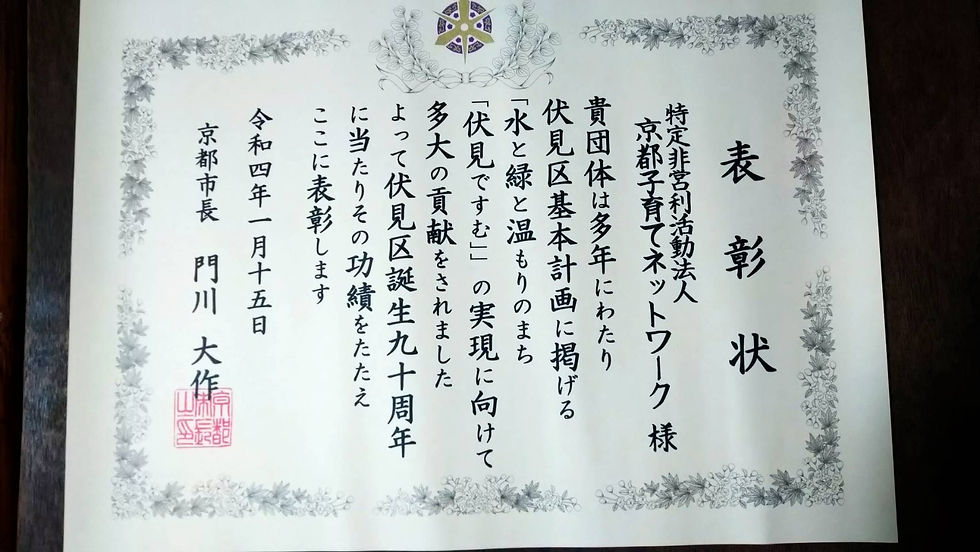 表彰状
特定非営利活動法人
京都子育てネットワーク 様
貴団体は多年にわたり
伏見区基本計画に掲げる
「水と緑と温もりのまち
「伏見ですむ」」の実現に向けて
多大の貢献をされました
よって伏見区誕生九十周年
に当たりその功績をたたえ
ここに表彰します
令和四年一月十五日
京都市長 門川 大作
京都市長之印